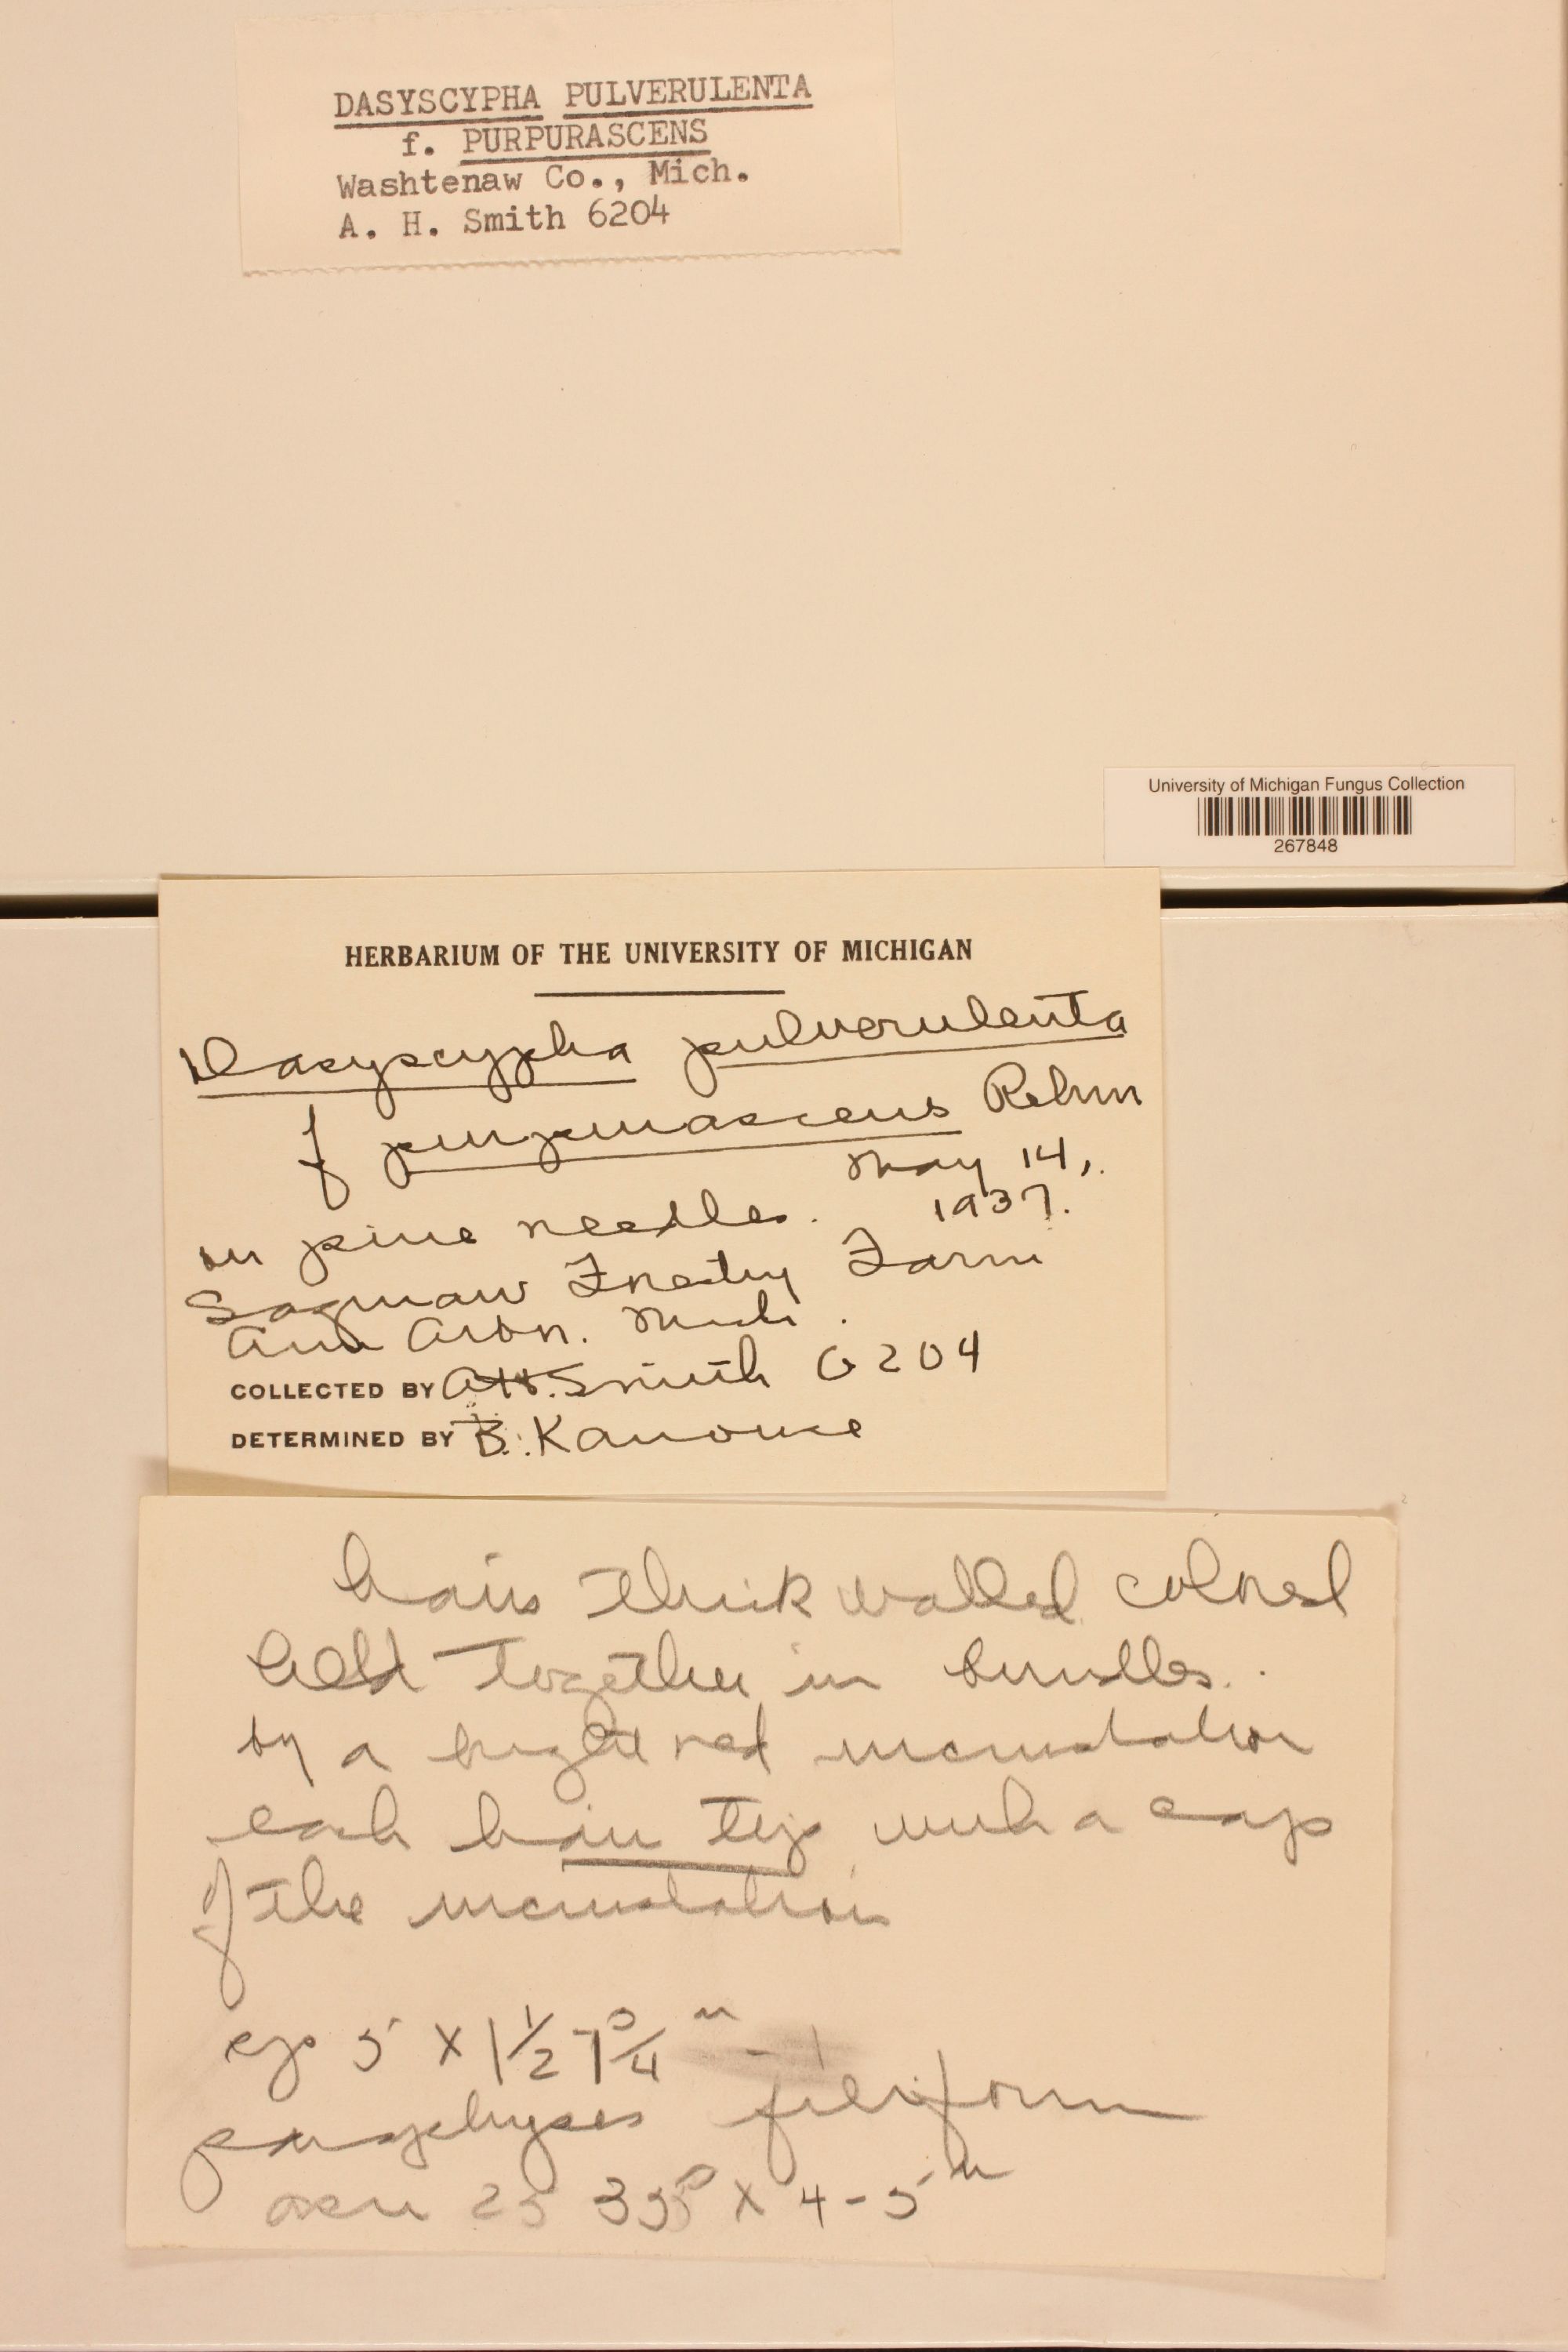 DASYSCYPHA PULVERULENTA
f. PURPURASCENS
Washtenaw Co., Mich.
A. H. Smith 6204
University of Michigan Fungus Collection
267848
HERBARIUM OF THE UNIVERSITY OF MICHIGAN
Dasyscypha pulverulenta
f purpurascens Rehm
May 14,
on pine needles. 1937.
Saginaw Forestry Farm
Ann Arbor. Mich.
COLLECTED BY A.H. Smith 6204
DETERMINED BY B. Kanouse
hairs thick walled colored
held together in bundles.
by a bright red incrustation
each hair tip with a cap
of the incrustation
5 X 1 1/2
paraphyses filiform
asci 25 35 X 4-5 u